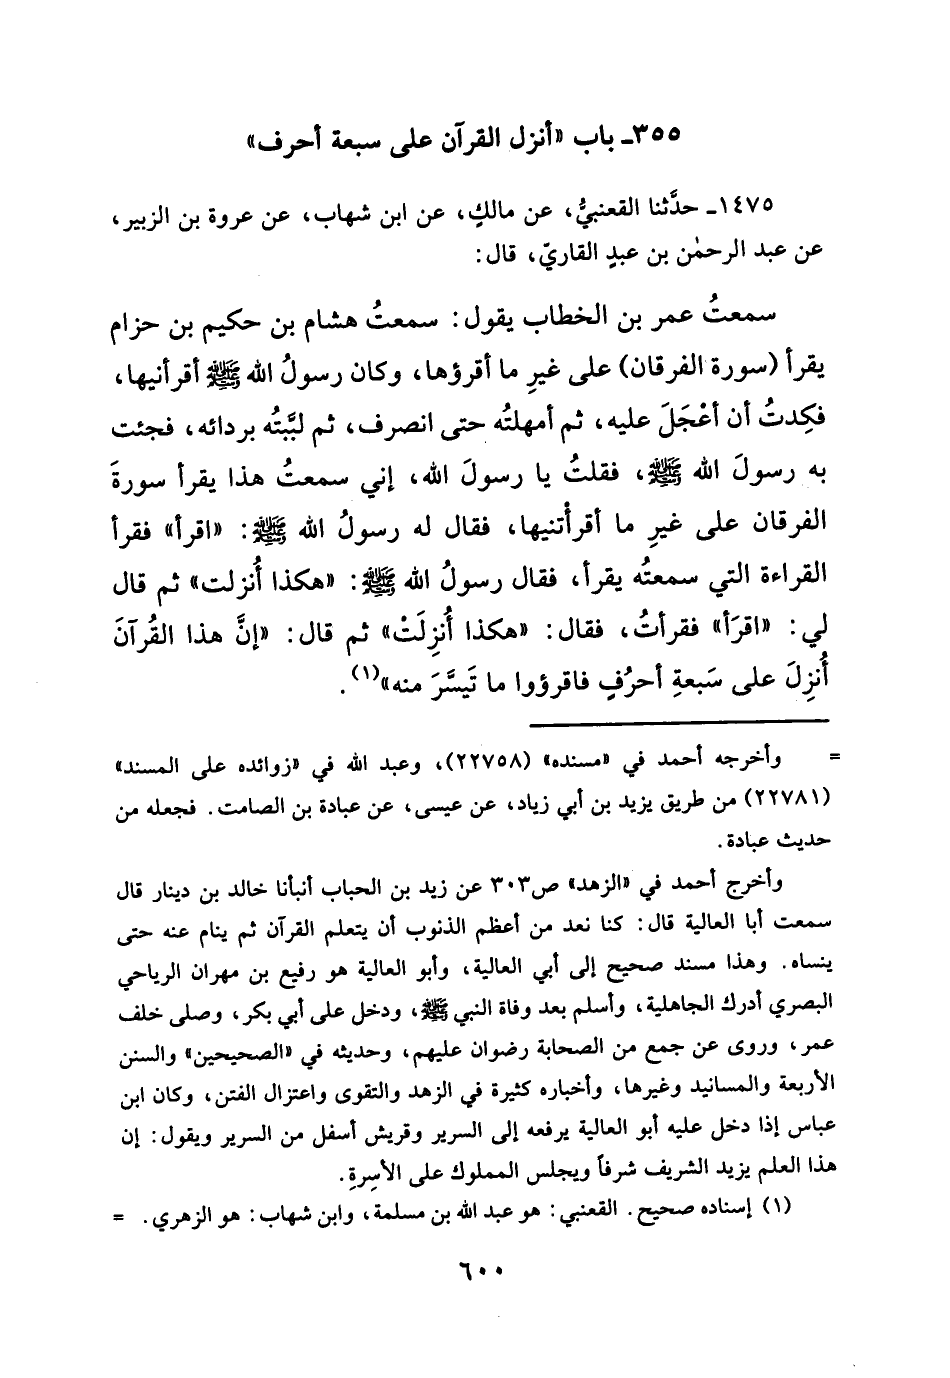 ٣٥٥ـ باب «أنزل القرآن على سبعة أحرف»
١٤٧٥ـ حدَّثنا القعنبيُّ، عن مالكٍ، عن ابن شهاب، عن عروة بن الزبير،
عن عبد الرحمٰن بن عبدٍ القاريّ، قال:
سمعتُ عمر بن الخطاب يقول: سمعتُ هشام بن حكيم بن حزام
يقرأ (سورة الفرقان) على غيرِ ما أقرؤها، وكان رسولُ الله ﷺ أقرأنيها،
فكِدتُ أن أعْجَلَ عليه، ثم أمهلتُه حتى انصرف، ثم لبَّبتُه بردائه، فجئت
به رسولَ الله ﷺ، فقلتُ يا رسولَ الله، إني سمعتُ هذا يقرأ سورةَ
الفرقان على غيرِ ما أقرأْتنيها، فقال له رسولُ الله ﷺ: «اقرأ» فقرأ
القراءة التي سمعتُه يقرأ، فقال رسولُ الله ﷺ: «هكذا أُنزلت» ثم قال
لي: «اقرَأ» فقرأتُ، فقال: «هكذا أُنزِلَتْ» ثم قال: «إنَّ هذا القُرآنَ
أُنزِلَ على سَبعةِ أحرُفٍ فاقرؤوا ما تَيسَّرَ منه»(١).
= وأخرجه أحمد في «مسنده» (٢٢٧٥٨)، وعبد الله في «زوائده على المسند»
(٢٢٧٨١) من طريق يزيد بن أبي زياد، عن عيسى، عن عبادة بن الصامت. فجعله من
حديث عبادة.
وأخرج أحمد في «الزهد» ص٣٠٣ عن زيد بن الحباب أنبأنا خالد بن دينار قال
سمعت أبا العالية قال: كنا نعد من أعظم الذنوب أن يتعلم القرآن ثم ينام عنه حتى
ينساه. وهذا مسند صحيح إلى أبي العالية، وأبو العالية هو رفيع بن مهران الرياحي
البصري أدرك الجاهلية، وأسلم بعد وفاة النبي ﷺ، ودخل على أبي بكر، وصلى خلف
عمر، وروى عن جمع من الصحابة رضوان عليهم، وحديثه في «الصحيحين» والسنن
الأربعة والمسانيد وغيرها، وأخباره كثيرة في الزهد والتقوى واعتزال الفتن، وكان ابن
عباس إذا دخل عليه أبو العالية يرفعه إلى السرير وقريش أسفل من السرير ويقول: إن
هذا العلم يزيد الشريف شرفاً ويجلس المملوك على الأسِرةِ.
(١) إسناده صحيح. القعنبي: هو عبد الله بن مسلمة، وابن شهاب: هو الزهري. =
٦٠٠